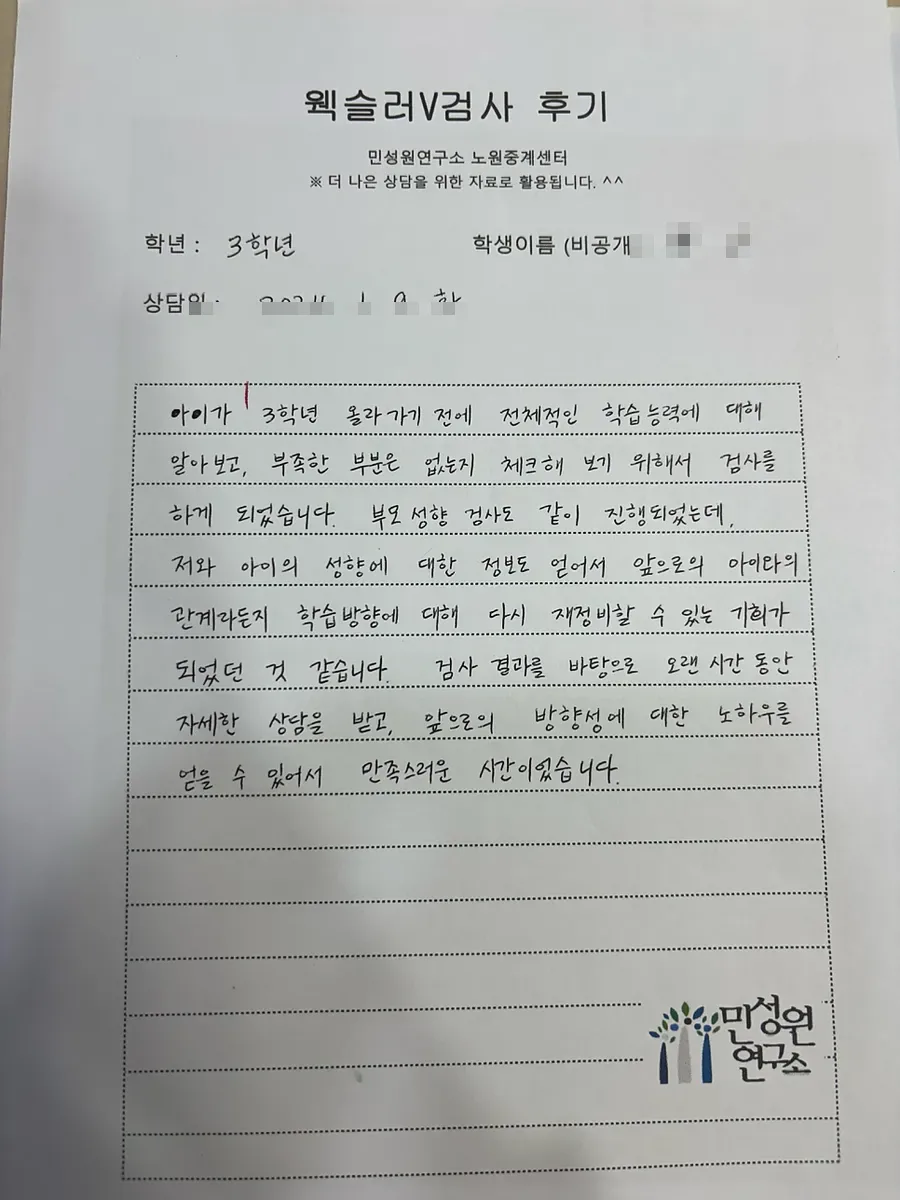 웩슬러V검사 후기
민성원연구소 노원중계센터
※ 더 나은 상담을 위한 자료로 활용됩니다. ^^
학년 : 3학년 학생이름 (비공개
상담일 :
아이가 3학년 올라가기 전에 전체적인 학습능력에 대해
알아보고, 부족한 부분은 없는지 체크해 보기 위해서 검사를
하게 되었습니다. 부모 성향 검사도 같이 진행되었는데,
저와 아이의 성향에 대한 정보도 얻어서 앞으로의 아이와의
관계라든지 학습방향에 대해 다시 재정비할 수 있는 기회가
되었던 것 같습니다. 검사 결과를 바탕으로 오랜 시간 동안
자세한 상담을 받고, 앞으로의 방향성에 대한 노하우를
얻을 수 있어서 만족스러운 시간이었습니다.
민성원
연구소